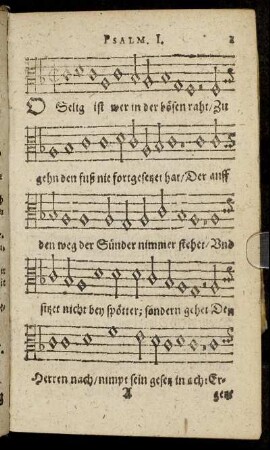 PSALM. I. 2
O Selig ist wer in der bösen raht/Zu
gehn den fuß nie fortgesetzet hat/Der auff
den weg der Sünder nimmer stehet/Vnd
sitzet nicht bey spötter; sondern gehet De
Herren nach/nimpt sein gesetz in acht Er-
A